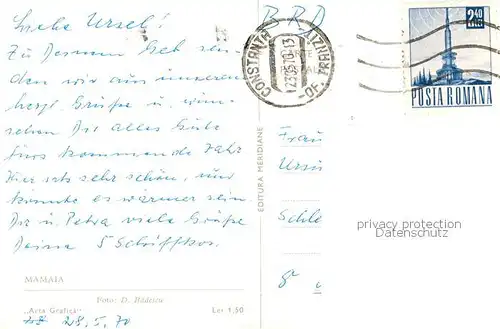 Liebe Ursel!
Zu Deinem Geb. sen-
den wir aus unserem
herzl. Grüße u. wün-
schen Dir alles Gute
fürs kommende Jahr
Hier ists sehr schön, nur
könnte es wärmer sein.
Dir u. Petra viele Grüße
Deine 5
MAMAIA
Foto: D. Bădescu
„Arta Grafică“ Lei 1,50
28. 5. 70
EDITURA MERIDIANE
BRD
CONSTANTA
OF. TRANZIT
2,40
POSTA ROMANA
Frau
Ursu
Schle
privacy protection
Datenschutz